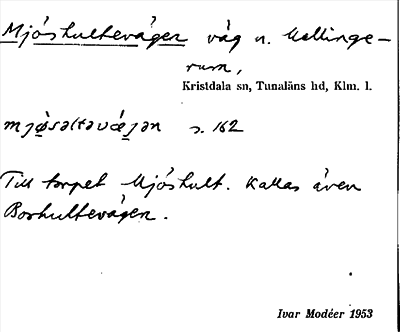 Mjöshultevägen väg n. Mellinge-
rum,
Kristdala sn, Tunaläns hd, Klm. l.
mjǿsəltəvǽjən s. 162
Till torpet Mjöshult. Kallas även
Boshultevägen.
Ivar Modéer 1953